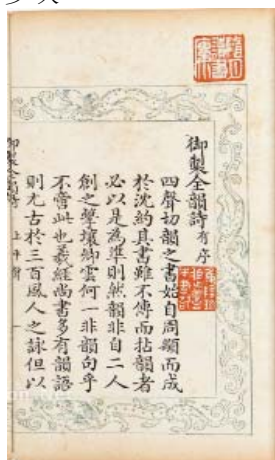 御製全韻詩有序
四聲切韻之書始自周顒而成
於沈約其書雖不傳而拈韻者
必以是為準則然韻非自二人
創之擊壤卿雲何一非韻句乎
不啻此也羲經尚書多有韻語
則尤古於三百風人之詠但以
御製全韻詩
上平聲
一